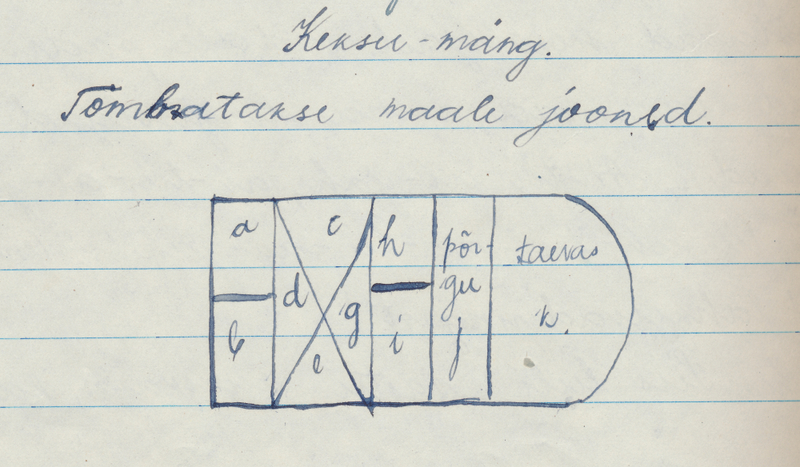 Keksu-mäng.
Tõmmatakse maale jooned.
a c h põr- taevas
d gu
b e g i j k.